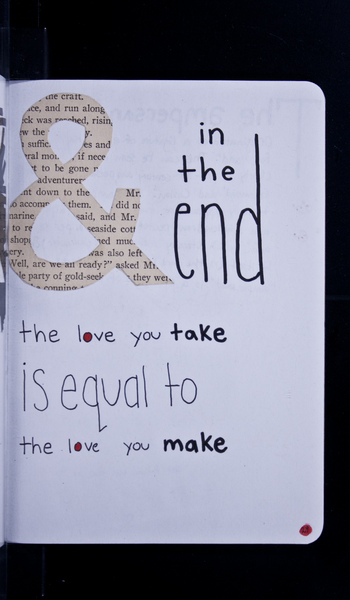 the craft.
ce, and run along
ck was reached, risin
w the y.
suffic es and
ral mor if nece
t to be gone
adventurer
nt down to the Mr.
to accom them. did no
marine said, and Mr.
to re seaside cott
shop ed muc
ery. was also left
Well, are we all ready?" asked Mr.
le party of gold-seek they were
&
in
the
end
the love you take
is equal to
the love you make